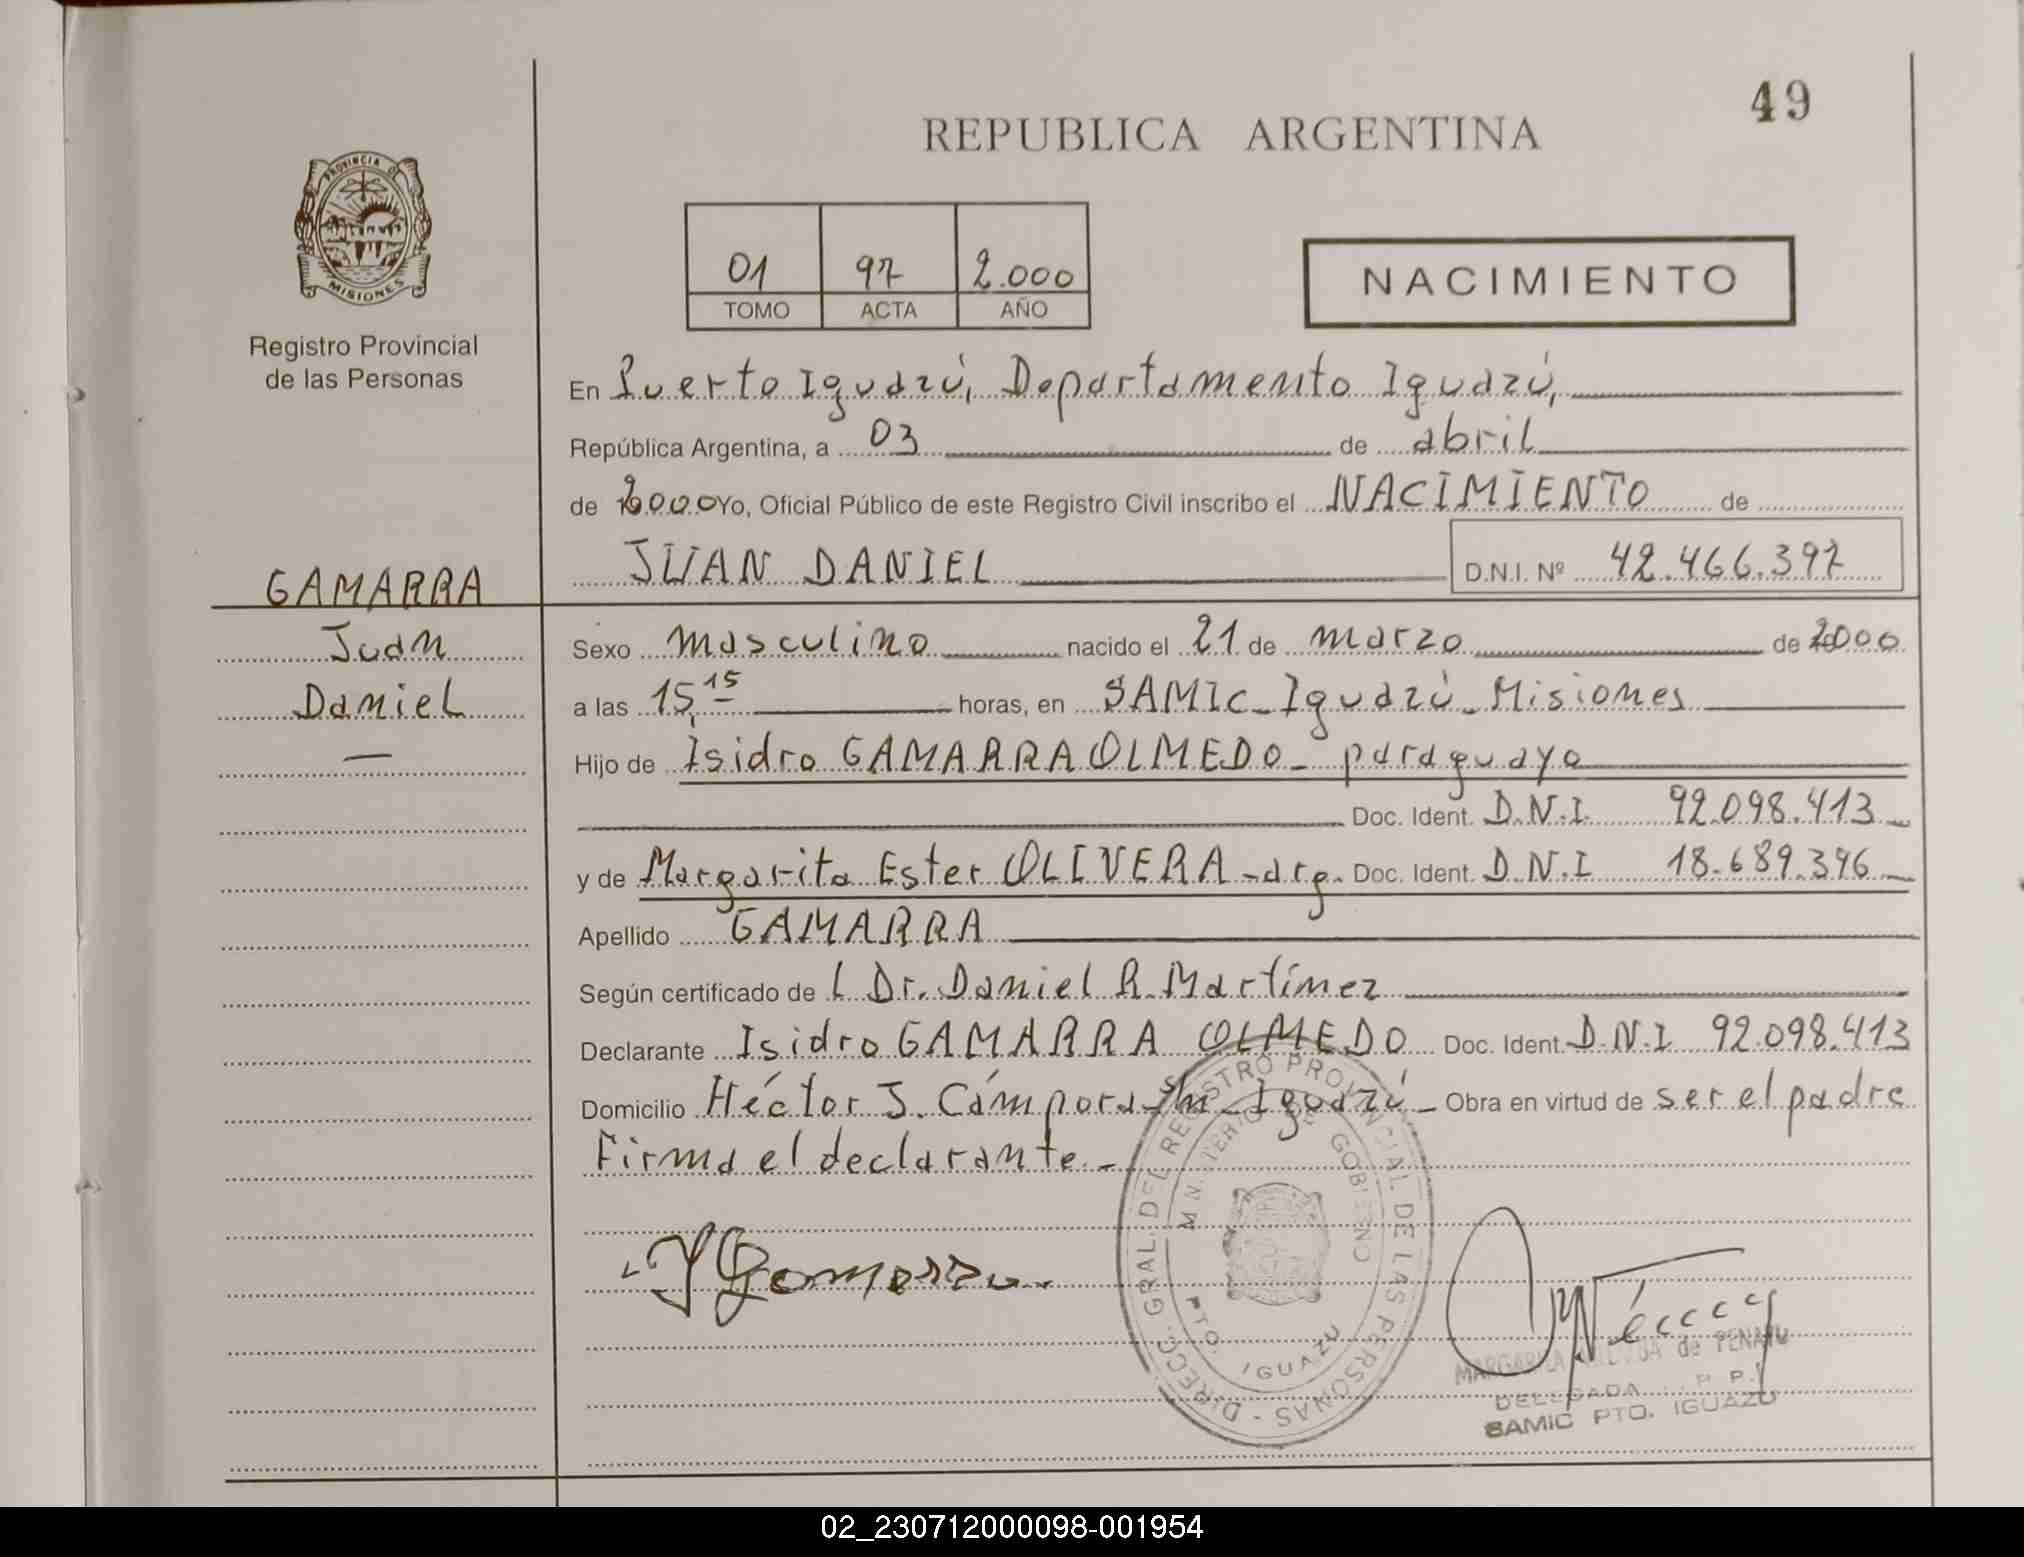 49
REPUBLICA ARGENTINA
PROVINCIA DE
MISIONES
Registro Provincial
de las Personas
01 97 2.000
TOMO ACTA AÑO
NACIMIENTO
En Puerto Iguazú, Departamento Iguazú,
República Argentina, a 03 de abril
de 2000 Yo, Oficial Público de este Registro Civil inscribo el NACIMIENTO de
JUAN DANIEL D.N.I. Nº 42.466.397
GAMARRA
Juan
Daniel
Sexo masculino nacido el 21 de marzo de 2000
a las 15,15 horas, en SAMIC_Iguazú_Misiones
Hijo de Isidro GAMARRA OLMEDO_ paraguayo
Doc. Ident. D.N.I. 92.098.413_
y de Margarita Ester OLIVERA_arg. Doc. Ident. D.N.I 18.689.396_
Apellido GAMARRA
Según certificado de L Dr. Daniel R. Martínez
Declarante Isidro GAMARRA OLMEDO Doc. Ident. D.N.I 92.098.413
Domicilio Héctor J. Cámpora S/n_Iguazú_ Obra en virtud de ser el padre
Firma el declarante._
DIRECC. GRAL. DEL REGISTRO PROVINCIAL DE LAS PERSONAS -
MINISTERIO DE GOBIERNO
PTO. IGUAZU
MARGARITA de PENAYO
DELEGADA R. P. P.
SAMIC PTO. IGUAZU
02_230712000098-001954